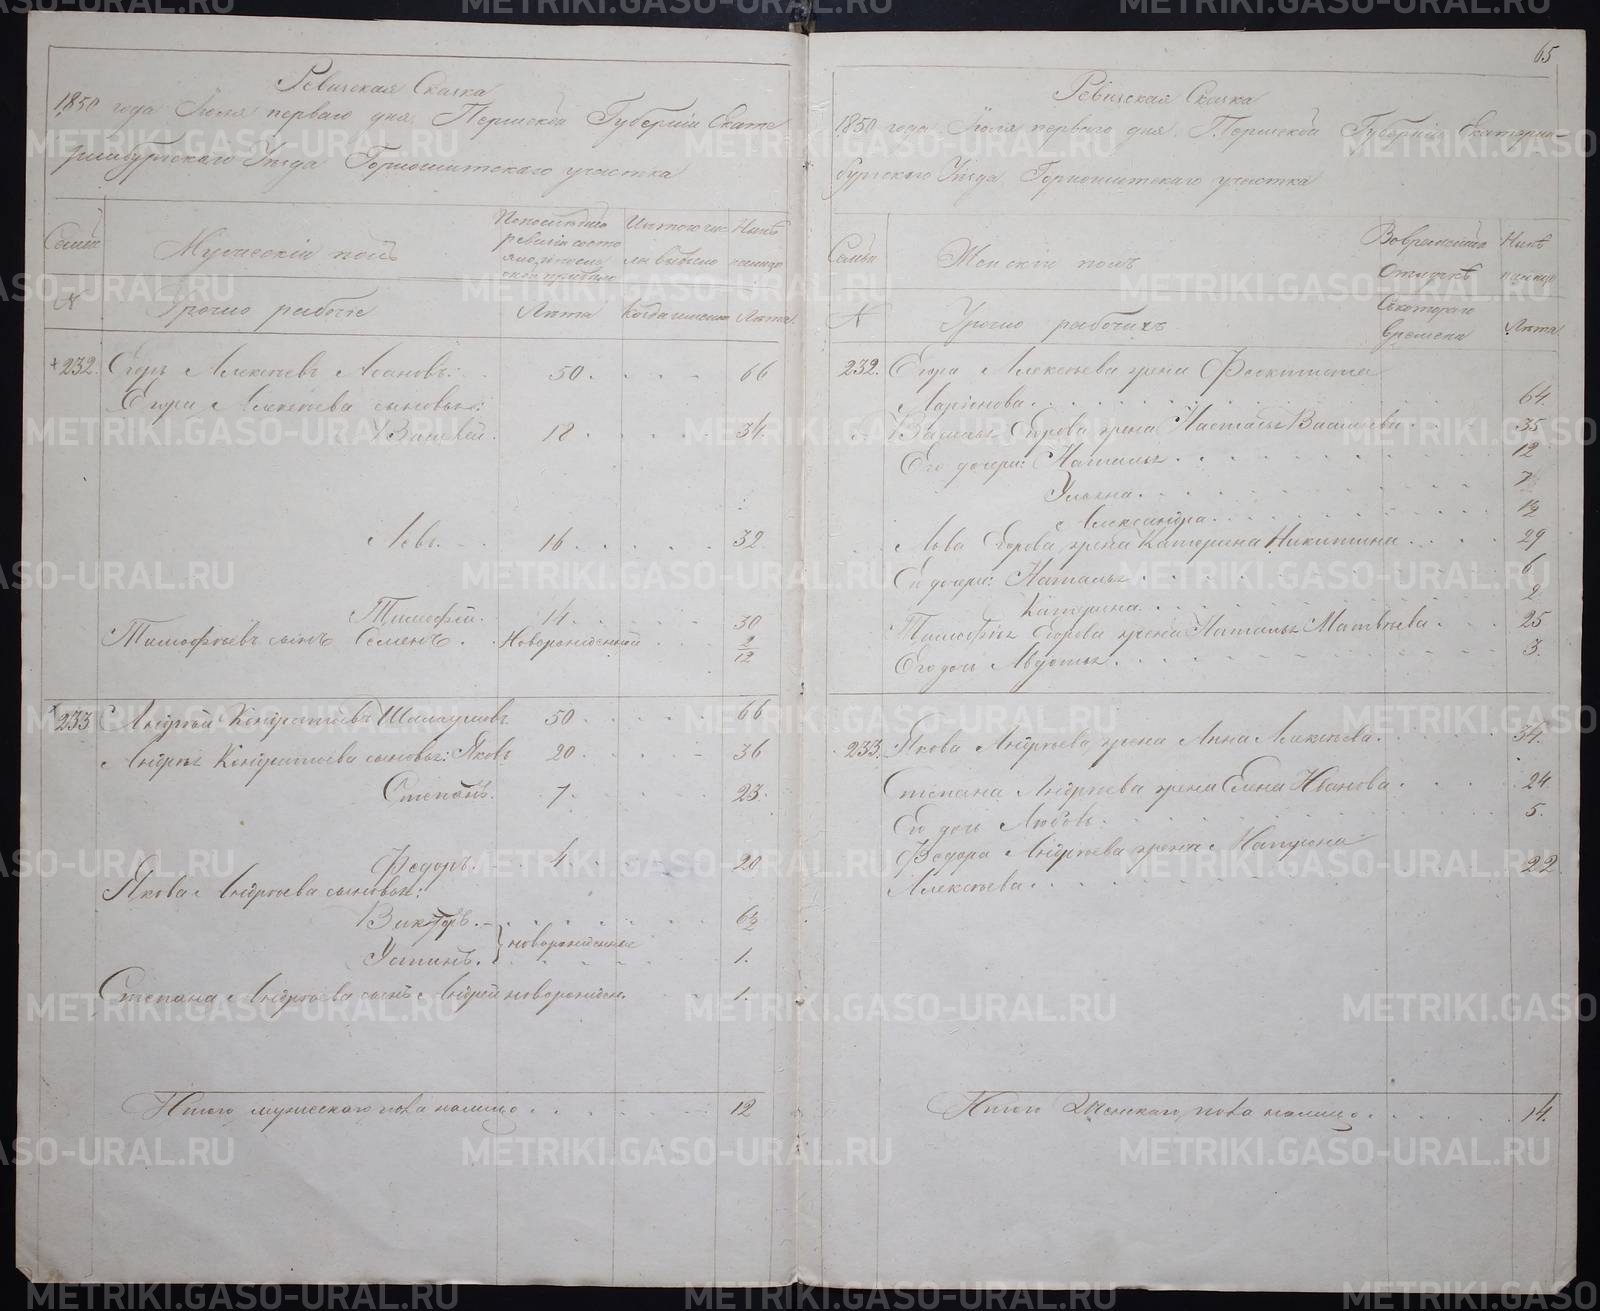 Ревижская Сказка
1850 года Іюля перваго дня Пермской Губерніи Екате
ринбургскаго Уѣзда Горнощитскаго участка
Семьи
Мужескій полъ
По последней
ревизіи состо
яло
Изъ того чис
ла выбыло
Нынѣ
налицо
№
Урочно рабочіе
Лѣта
Когда именно
Лѣта
232.
Егоръ Алексѣевъ
50.
66
Егора Алексѣева сыновья:
Василій.
18
34.
Левъ.
16
32
Тимофѣй.
14.
30
Тимофѣевъ сынъ Семенъ.
Новорожденный
2/12
233
Андрей Кондратьевъ
50
66
Андрея Кондратьева сыновья: Яковъ
20
36
Степанъ.
7.
23.
Федоръ.
4.
20
Якова Андрѣева сыновья:
Викторъ.
новорожденные
6½
Устинъ.
1.
Степана Андрѣева сынъ Андрей новорожден.
1.
Итого мужескаго пола налицо
12
65
Ревижская Сказка
1850 года Іюля перваго дня Пермской Губерніи Екатерин-
бургскаго Уѣзда Горнощитскаго участка
Семьи
Женскій полъ
Во временной
отлучкѣ
Нынѣ
налицо
№
Урочно рабочихъ
Съ котораго
времени
Лѣта
232.
Егора Алексѣева жена Феоктиста
Ларіонова
64.
Василья Егорова жена Настасья Васильева
35
Его дочери: Наталья
12
Ульяна
7
Александра
1½
Льва Егорова жена Катерина Никитина
29
Его дочери: Наталья
6
Катерина
2
Тимофѣя Егорова жена Наталья Матвѣева
25
Его дочь Авдотья
3.
233.
Якова Андрѣева жена Анна Алексѣева.
34.
Степана Андрѣева жена Елена Иванова
24
Его дочь Любовь.
5.
Федора Андрѣева жена Матрена
Алексѣева
22
Итого Женскаго пола налицо
14.
METRIKI.GASO-URAL.RU